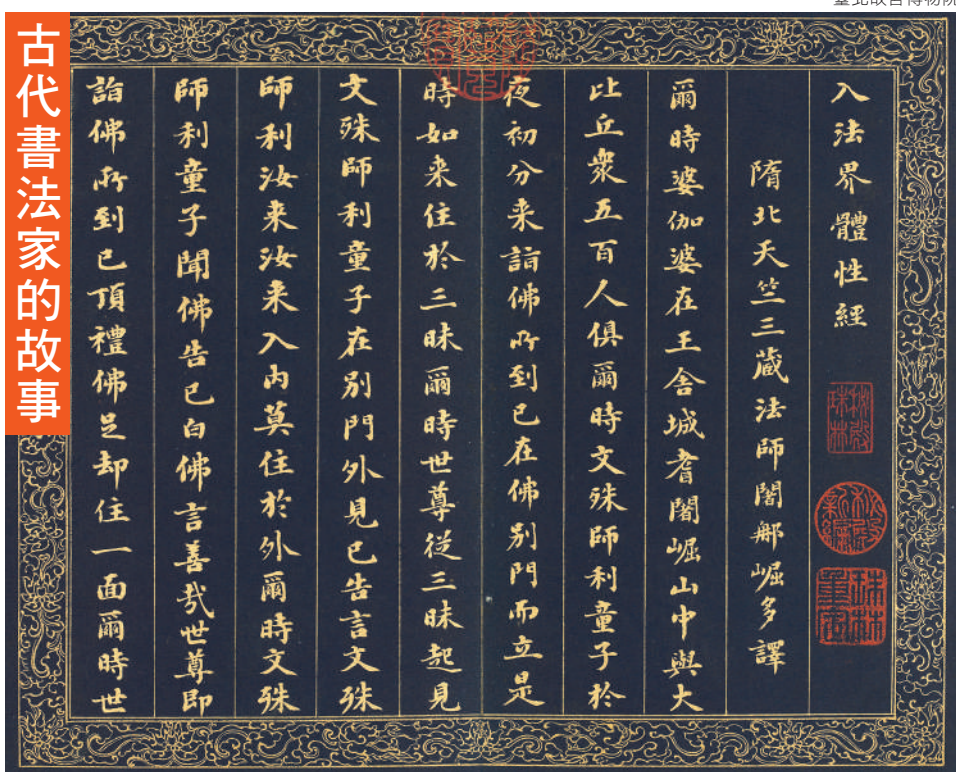 古代書法家的故事
入法界體性經
隋北天竺三藏法師闍那崛多譯
爾時婆伽婆在王舍城耆闍崛山中與大
比丘眾五百人俱爾時文殊師利童子於
夜初分来詣佛所到已在佛別門而立是
時如来住於三昧爾時世尊從三昧起見
文殊師利童子在別門外見已告言文殊
師利汝来汝来入內莫住於外爾時文殊
師利童子聞佛告已白佛言善哉世尊即
詣佛所到已頂禮佛足却住一面爾時世